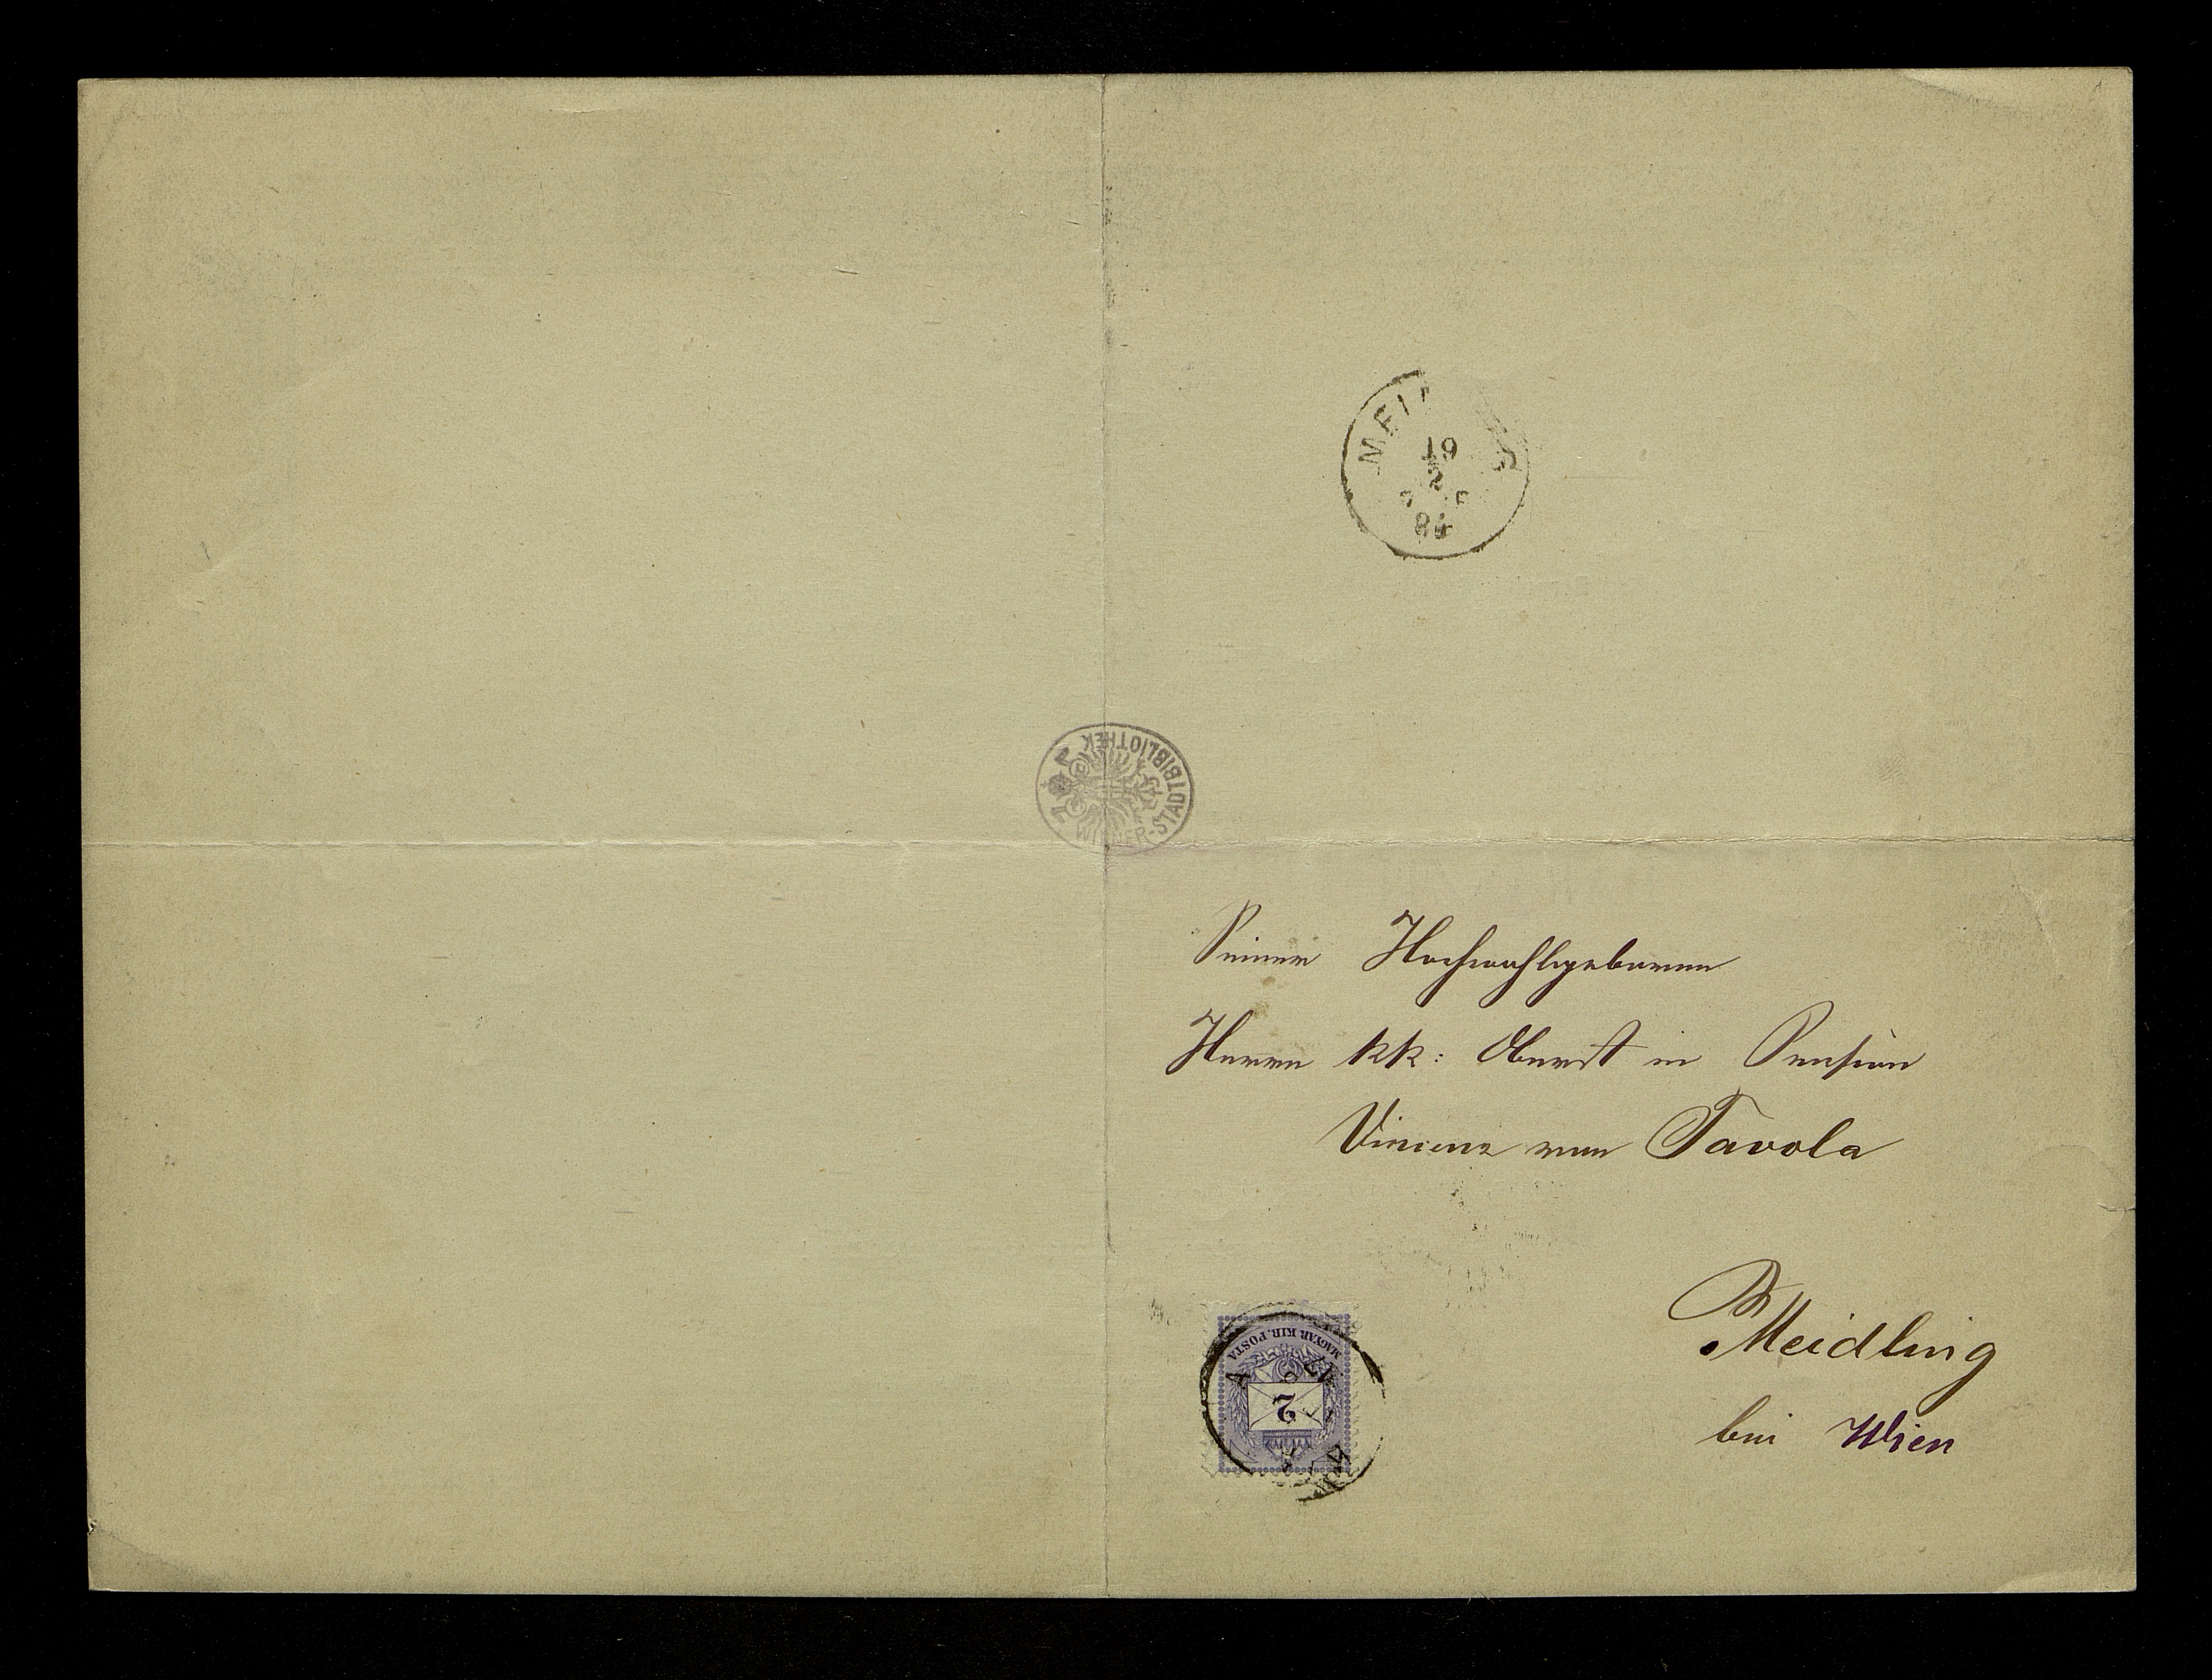 19
2
84
WIENER-STADTBIBLIOTHEK
Seiner Hochwohlgeboren
Herrn kk: Oberst in Pension
Vincenz von Tavola
Meidling
bei Wien
MAGYAR KIR. POSTA
2